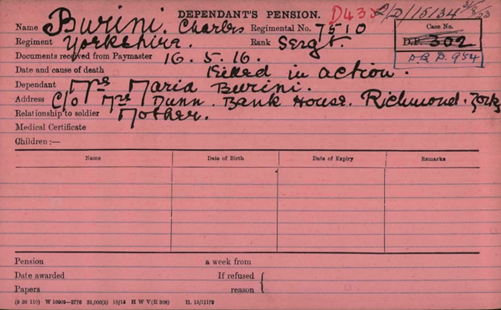 DEPENDANT'S PENSION.
D43 /D/115134
Name Burini. Charles Regimental No. 7510
Case No.
Regiment Yorkshire. Rank Sergt.
D.P. 302
Documents received from Paymaster 16.5.16.
Date and cause of death Killed in action.
Dependant Mrs Maria Burini.
Address C/o Mrs Dunn. Bank House. Richmond. Yorks
Relationship to soldier Mother.
Medical Certificate
Children:—
Name Date of Birth Date of Expiry Remarks
Pension a week from
Date awarded If refused
Papers reason